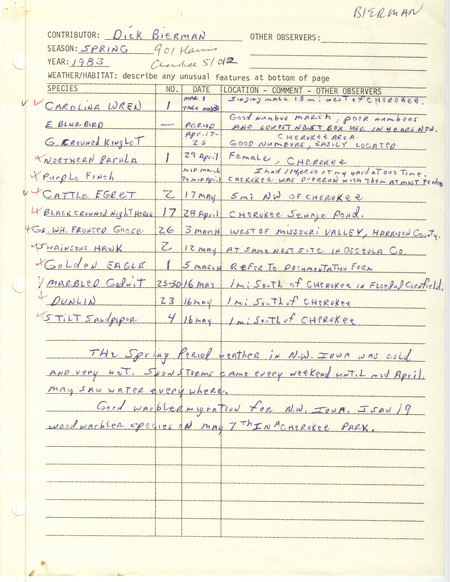 BIERMAN
CONTRIBUTOR: DICK BIERMAN OTHER OBSERVERS:
SEASON: SPRING 901
YEAR: 1983 Cherokee 51012
WEATHER/HABITAT: describe any unusual features at bottom of page
SPECIES NO. DATE LOCATION - COMMENT - OTHER OBSERVERS
CAROLINA WREN 1 MAR 1 THRU Singing male 13 mi. west of CHEROKEE.
E. BLUEBIRD — PERIOD Good number MARCH, poor numbers AND LOWEST NEST BOX USE IN YEARS NOW.
G. CROWNED KINGLET APRIL 17-25 CHEROKEE AREA. GOOD NUMBERS, EASILY LOCATED
NORTHERN PARULA 1 29 April Female, CHEROKEE
Purple Finch MID MARCH I had 114 of 50 at my yard at one time. CHEROKEE WAS OVERRUN WITH THEM AT MOST FEEDERS
CATTLE EGRET 2 17 May 5 mi NW OF CHEROKEE
BLACK CROWNED Night HERON 17 28 April CHEROKEE Sewage Pond.
GR. WH. FRONTED GOOSE 26 3 MARCH WEST OF MISSOURI VALLEY, HARRISON County.
SWAINSONS HAWK 2 12 MAY AT SAME NEST SITE IN OSCEOLA Co.
Golden EAGLE 1 5 MARCH REFER TO DOCUMENTATION FORM
MARBLED Godwit 25-30 16 MAY 1 mi South of CHEROKEE IN Flooded Cornfield.
DUNLIN 23 16 may 1 mi South of CHEROKEE
STILT Sandpiper 4 16 may 1 mi South of CHEROKEE
THE Spring Period weather in N.W. Iowa was cold
AND very wet. Snow STORMS came every weekend until mid April.
May saw water every where.
Good warbler migration for N.W. Iowa. I saw 19
wood warbler species on May 7th IN A CHEROKEE PARK.